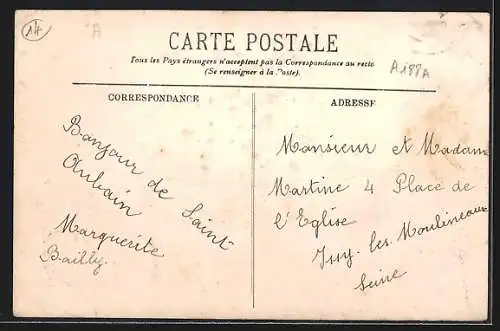 14
A
CARTE POSTALE
Tous les Pays étrangers n'acceptent pas la Correspondance au recto
(Se renseigner à la Poste).
A188A
CORRESPONDANCE
Bonjour de Saint
Aubain
Marguerite
Bailly.
ADRESSE
Monsieur et Madam
Martine 4 Place de
l'Eglise
Issy. les Moulineaux
Seine